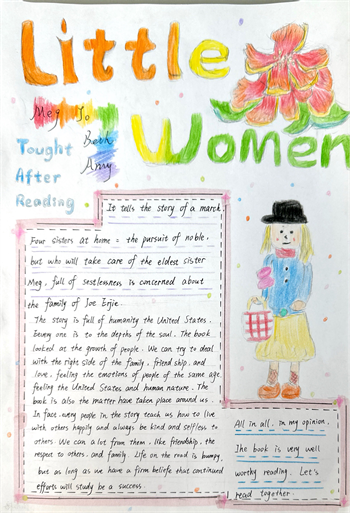 Little
Women
Meg Jo
Beth
Amy
Tought
After
Reading
It tells the story of a march
Four sisters at home = the pursuit of noble,
but who will take care of the eldest sister
Meg, full of sestlessness is concerned about
the family of Joe Erjie.
The story is full of humanity the United States.
Every one is to the depths of the soul. The book
looked at the growth of people. We can try to deal
with the right side of the family, friendship, and
love, feeling the emotions of people of the same age
feeling the United States and human nature. The
book is also the matter have taken place around us.
In face, every people in the story teach us how to live
with others happily and always be kind and selfless to
others. We can a lot from them, like friendship, the
respect to others, and family. Life on the road is bumpy,
but as long as we have a firm belief that continued
efforts will study be a success.
All in all, in my opinion,
The book is very well
worthy reading. Let's
read together.